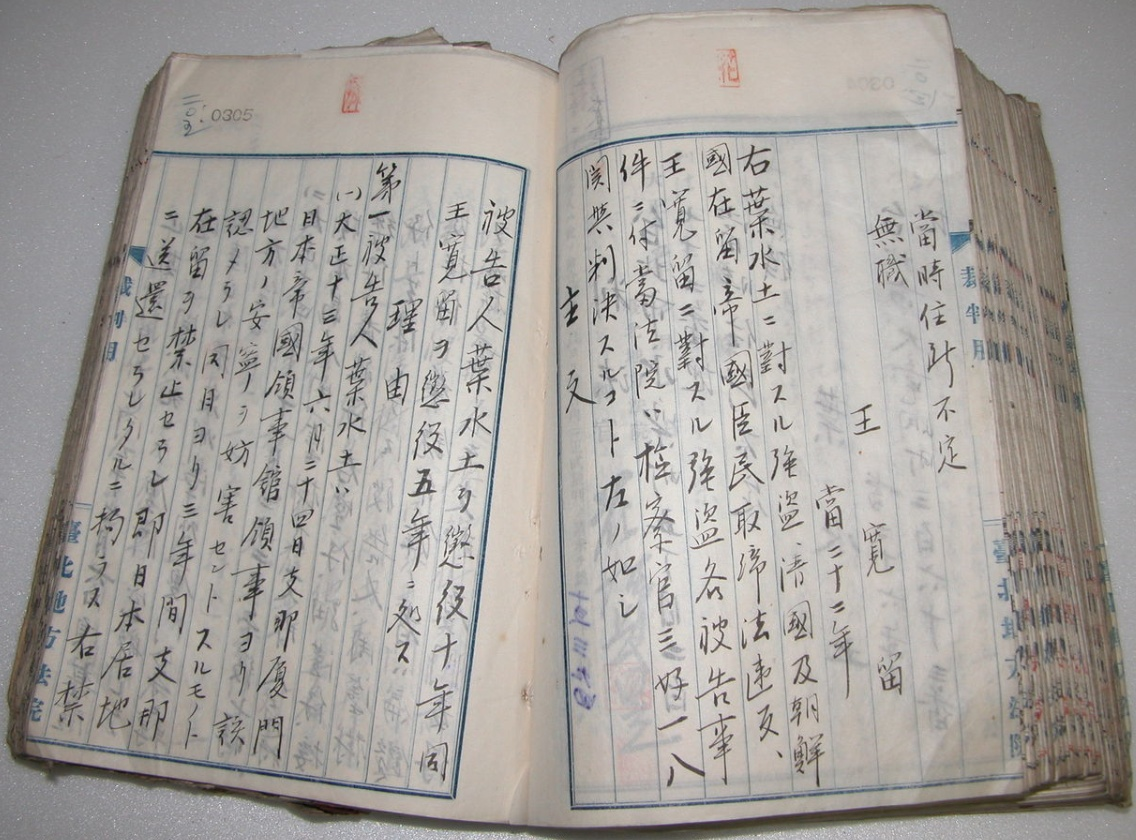 當時住所不定
無職
王寛留
當二十二年
右葉水土ニ對スル強盗、清國及朝鮮
國在留帝國臣民取締法違反、
王寛留ニ對スル強盗各被告事
件ニ付當法院ハ檢察官三好一八
関與判決スルコト左ノ如シ
主文
被告人葉水土ヲ懲役十年同
王寛留ヲ懲役五年ニ処ス
理由
第一被告人葉水土ハ
(一)大正十三年六月二十四日支那厦門
日本帝國領事館領事ヨリ該
地方ノ安寧ヲ妨害セントスルモノト
認メラレ同月ヨリ三年間支那
在留ヲ禁止セラレ即日本居地
ニ送還セラレタルニ拘ラス右禁
0305
裁判用
臺北地方法院
裁判用
臺北地方法院